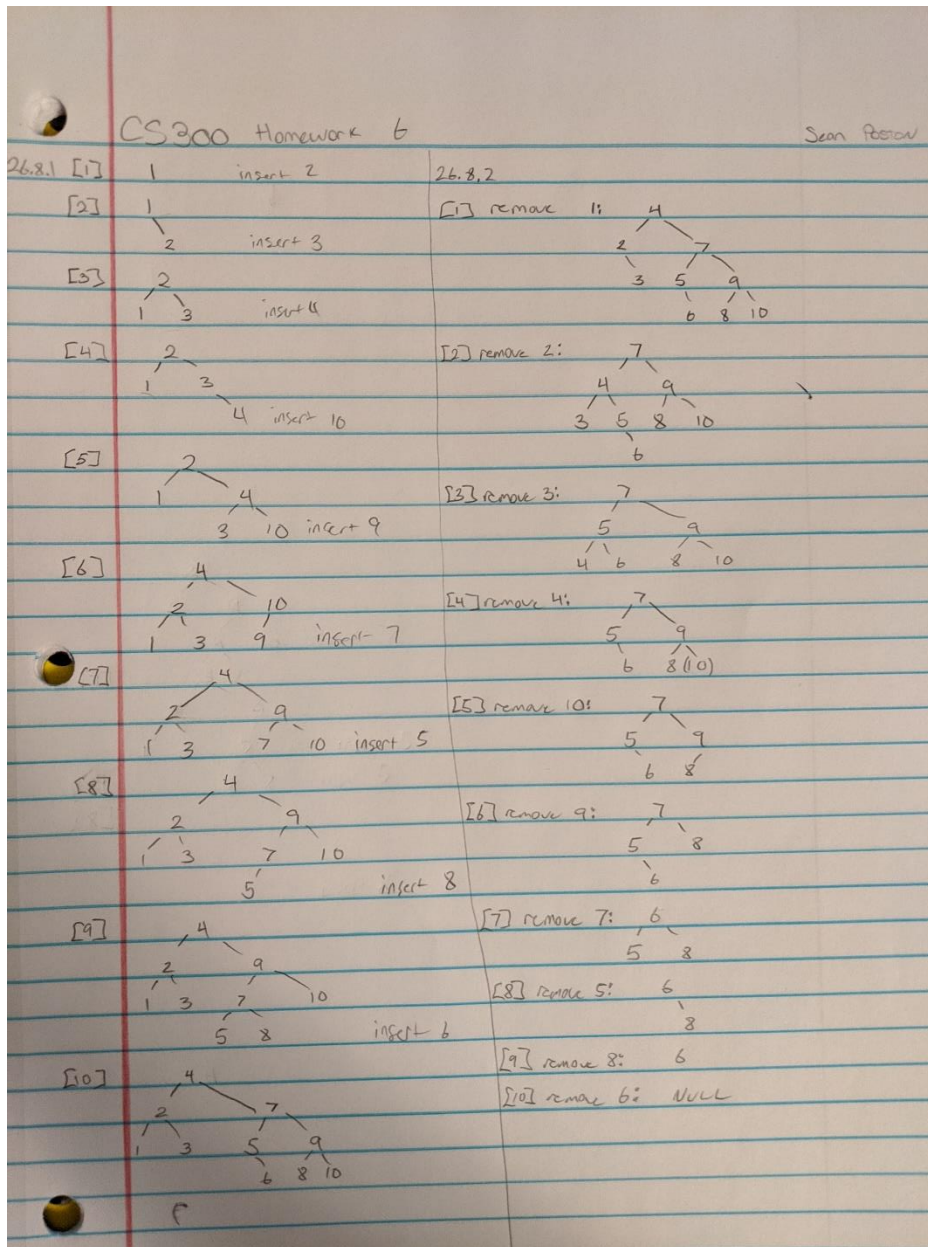 CS300 Homework 6
Sean Poston
26.8.1 [1] 1 insert 2
[2] 1
2 insert 3
[3] 2
1 3 insert 4
[4] 2
1 3
4 insert 10
[5] 2
1 4
3 10 insert 9
[6] 4
2 10
1 3 9 insert 7
[7] 4
2 9
1 3 7 10 insert 5
[8] 4
2 9
1 3 7 10
5 insert 8
[9] 4
2 9
1 3 7 10
5 8 insert 6
[10] 4
2 7
1 3 5 9
6 8 10
26.8.2
[1] remove 1: 4
2 7
3 5 9
6 8 10
[2] remove 2: 7
4 9
3 5 8 10
6
[3] remove 3: 7
5 9
4 6 8 10
[4] remove 4: 7
5 9
6 8 (10)
[5] remove 10: 7
5 9
6 8
[6] remove 9: 7
5 8
6
[7] remove 7: 6
5 8
[8] remove 5: 6
8
[9] remove 8: 6
[10] remove 6: NULL